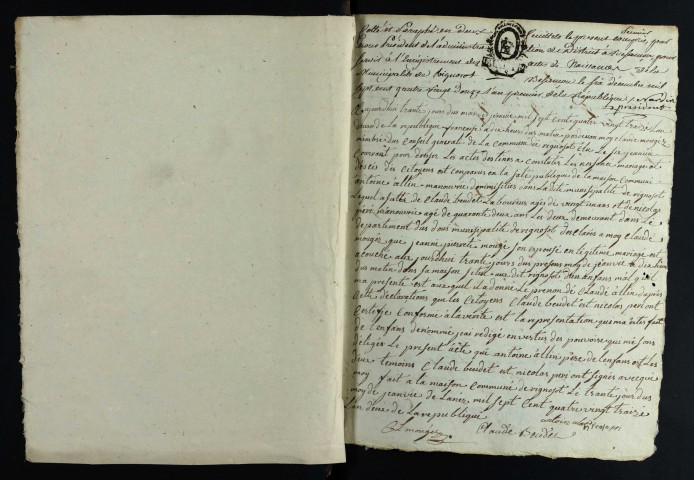 Cotté et Paraphé en deux feuillets le present registre, premier
par nous President de l'administration du District de Besançon, pour
servir à l'Enregistrement des actes de Naissance de la
Municipalité de Vignorot Besançon le six décembre mil
sept cent quatre vingt douze l'an premier de la République
président
aujourdhui trante jours du mois jeanvié mil sept centz quatre vingt traize Lan
deux de la republique françoise a dix heurs du matin par devan moy claude mougez
membre du Conseil general de La commune de vignosot élu Le
Courrant pour dresser Les actes destines a constater Les nessance mariage et
déscès des Citoyens est comparus en la sale publique de la maison Commune
antoine allin manouvrie domissilies dans La dite municipalité de vignosot
Lequel assisté de Claude boudet Laboureur agés de vingt neux ans et de nicolas
peri manouvrie agé de quarante deux ans Les deux demeurant dans Le
departement du doux municipalite de vignosot a declarés a moy Claude
mougez que jeanne mougé son epouse en legitime mariage est
acouché aux jourdhui trante jours du presens moy de jeanvie a dix heurs
du matin dans sa maison situé audit vignosot d'un enfans mal qu'il
ma presenté est auxquel il a donné Le prenon de Claude allin dapres
Cette declarations que les Citoyens Claude boudet est nicolas peri ont
Certifie Conforme a la verite est la representation qui ma ete fait
de l'enfans denommé, jai redigé en vertus des pouvoirs qui me sons
deleguez Le present acte que antoine allin pere de l'enfans est Les
deux temoins Claude boudet est nicolas peri ont signes avecque
moy fait a la maison Commune de vignosot Le trante jour du
moy de jeanvie de Lanez mil sept Cent quatre vingt traize
Lan deux de La republique
C mougez Claude Boudet antoine alin nicolas peri